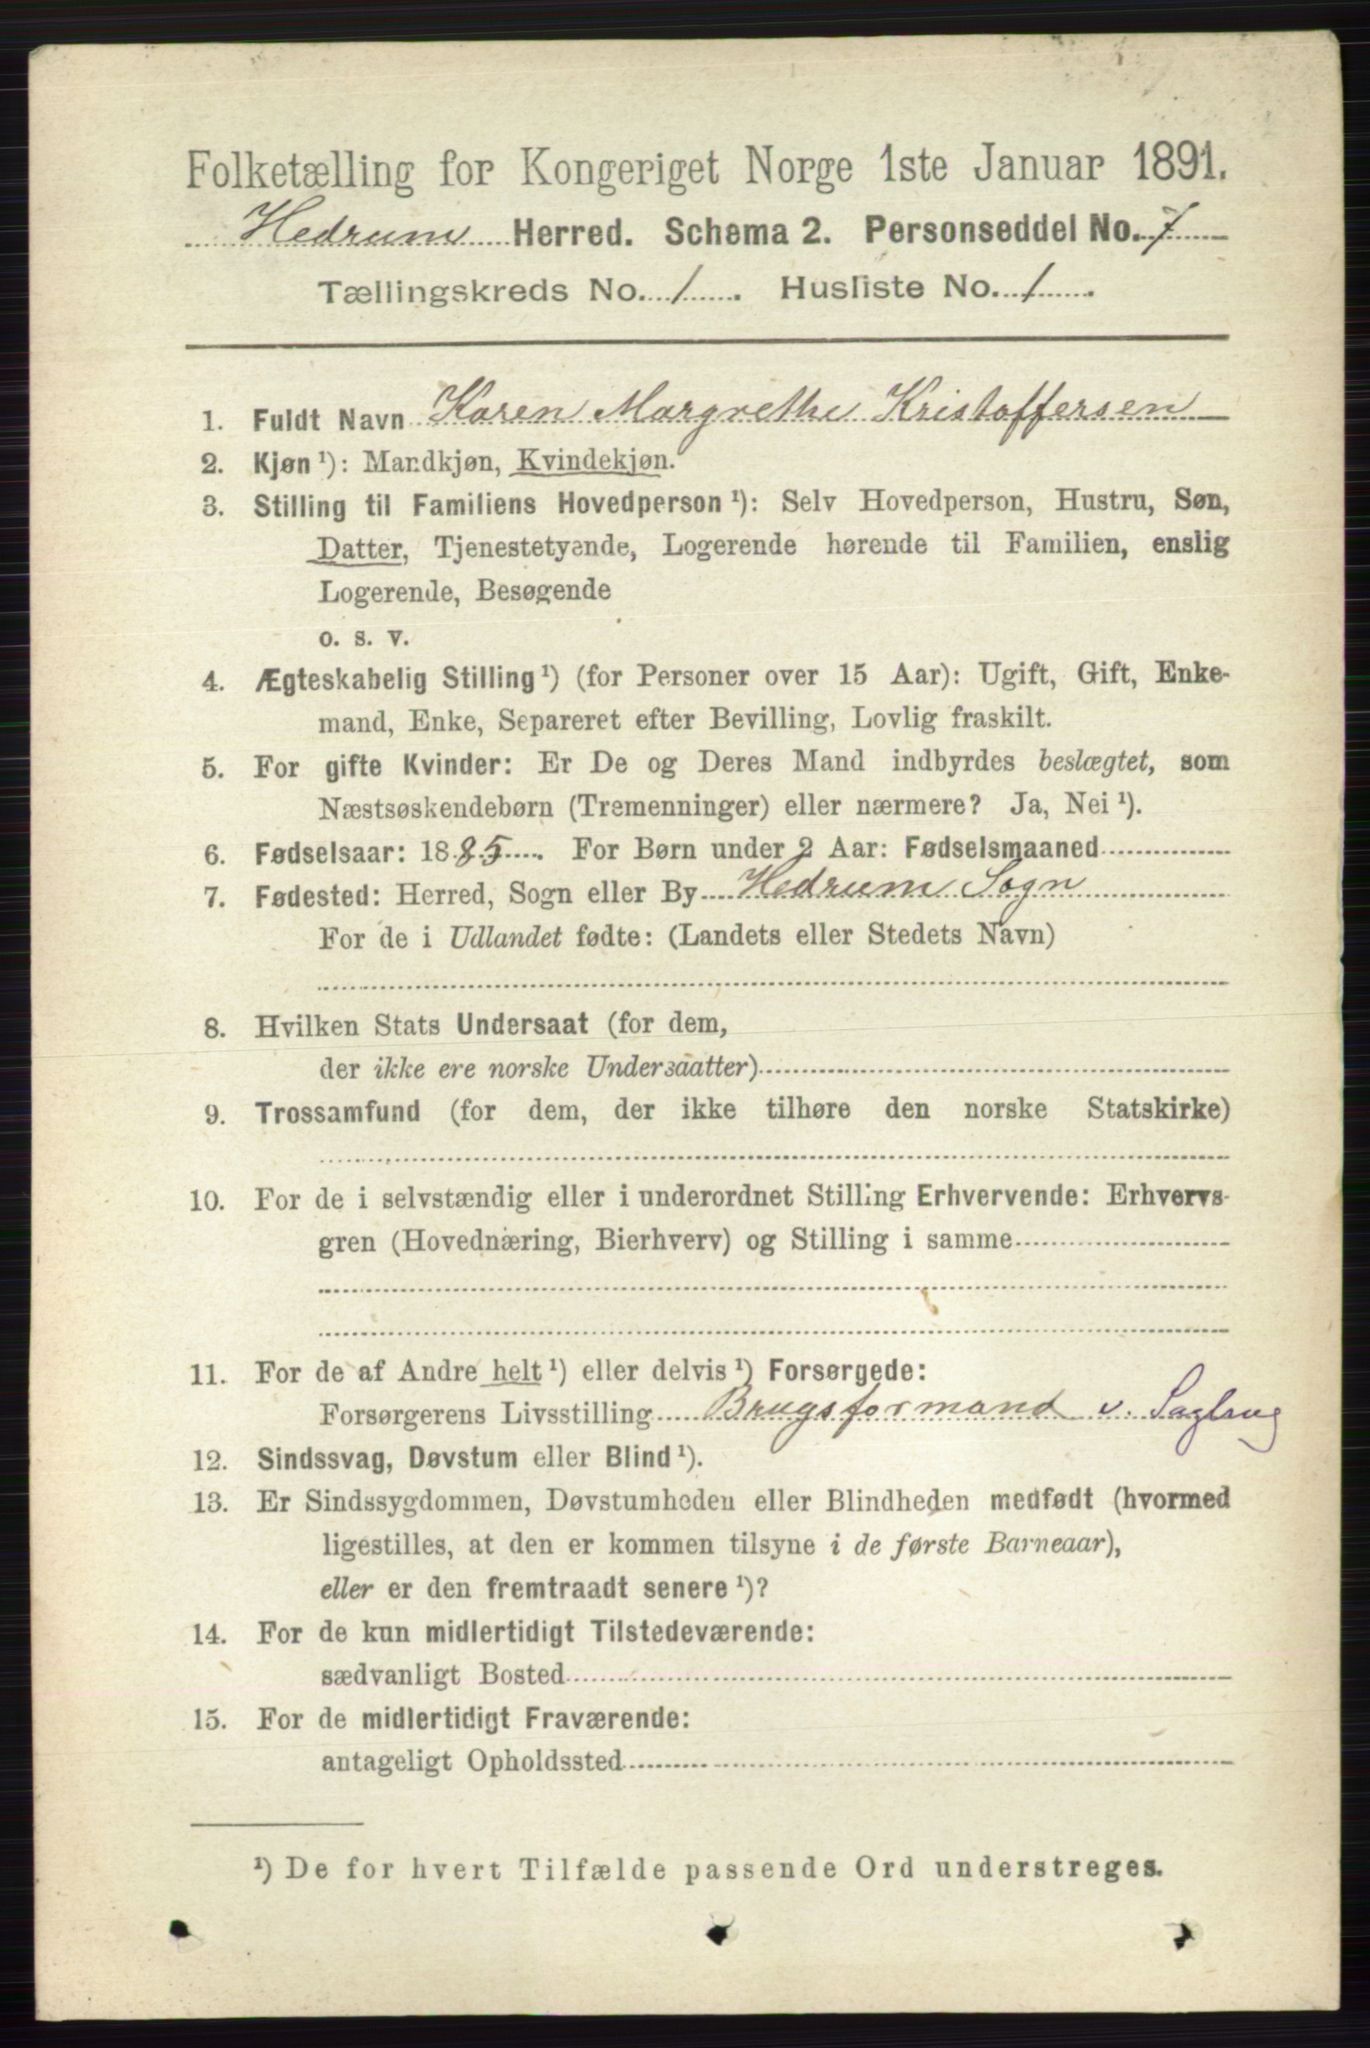 Folketælling for Kongeriget Norge 1ste Januar 1891.
Hedrum Herred. Schema 2. Personseddel No. 7
Tællingskreds No. 1. Husliste No. 1.
1. Fuldt Navn Karen Margrethe Kristoffersen
2. Kjøn ¹): Mandkjøn, Kvindekjøn.
3. Stilling til Familiens Hovedperson ¹): Selv Hovedperson, Hustru, Søn,
Datter, Tjenestetyende, Logerende hørende til Familien, enslig
Logerende, Besøgende
o. s. v.
4. Ægteskabelig Stilling ¹) (for Personer over 15 Aar): Ugift, Gift, Enke-
mand, Enke, Separeret efter Bevilling, Lovlig fraskilt.
5. For gifte Kvinder: Er De og Deres Mand indbyrdes beslægtet, som
Næstsøskendebørn (Tremenninger) eller nærmere? Ja, Nei ¹).
6. Fødselsaar: 1885. For Børn under 2 Aar: Fødselsmaaned
7. Fødested: Herred, Sogn eller By Hedrum Sogn
For de i Udlandet fødte: (Landets eller Stedets Navn)
8. Hvilken Stats Undersaat (for dem,
der ikke ere norske Undersaatter)
9. Trossamfund (for dem, der ikke tilhøre den norske Statskirke)
10. For de i selvstændig eller i underordnet Stilling Erhvervende: Erhvervs-
gren (Hovednæring, Bierhverv) og Stilling i samme
11. For de af Andre helt ¹) eller delvis ¹) Forsørgede:
Forsørgerens Livsstilling Brugsformand v. Sagbrug
12. Sindssvag, Døvstum eller Blind ¹).
13. Er Sindssygdommen, Døvstumheden eller Blindheden medfødt (hvormed
ligestilles, at den er kommen tilsyne i de første Barneaar),
eller er den fremtraadt senere ¹)?
14. For de kun midlertidigt Tilstedeværende:
sædvanligt Bosted
15. For de midlertidigt Fraværende:
antageligt Opholdssted
¹) De for hvert Tilfælde passende Ord understreges.